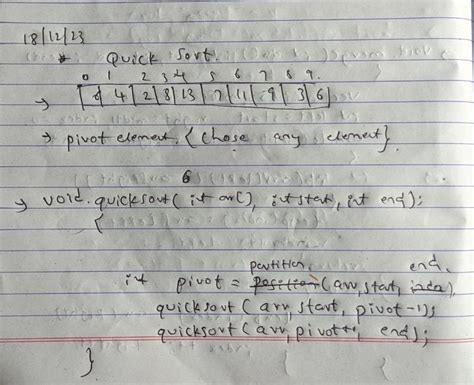 18/12/23
* Quick Sort.
0 1 2 3 4 5 6 7 8 9.
→ 4 2 8 13 11 9 3 6
→ pivot element. {chose any element}.
6
→ void. quicksort( it arr[], int start, int end);
{
partition. end.
int pivot = position (arr, start, index),
quicksort (arr, start, pivot-1);
quicksort (arr, pivot+1, end);
}